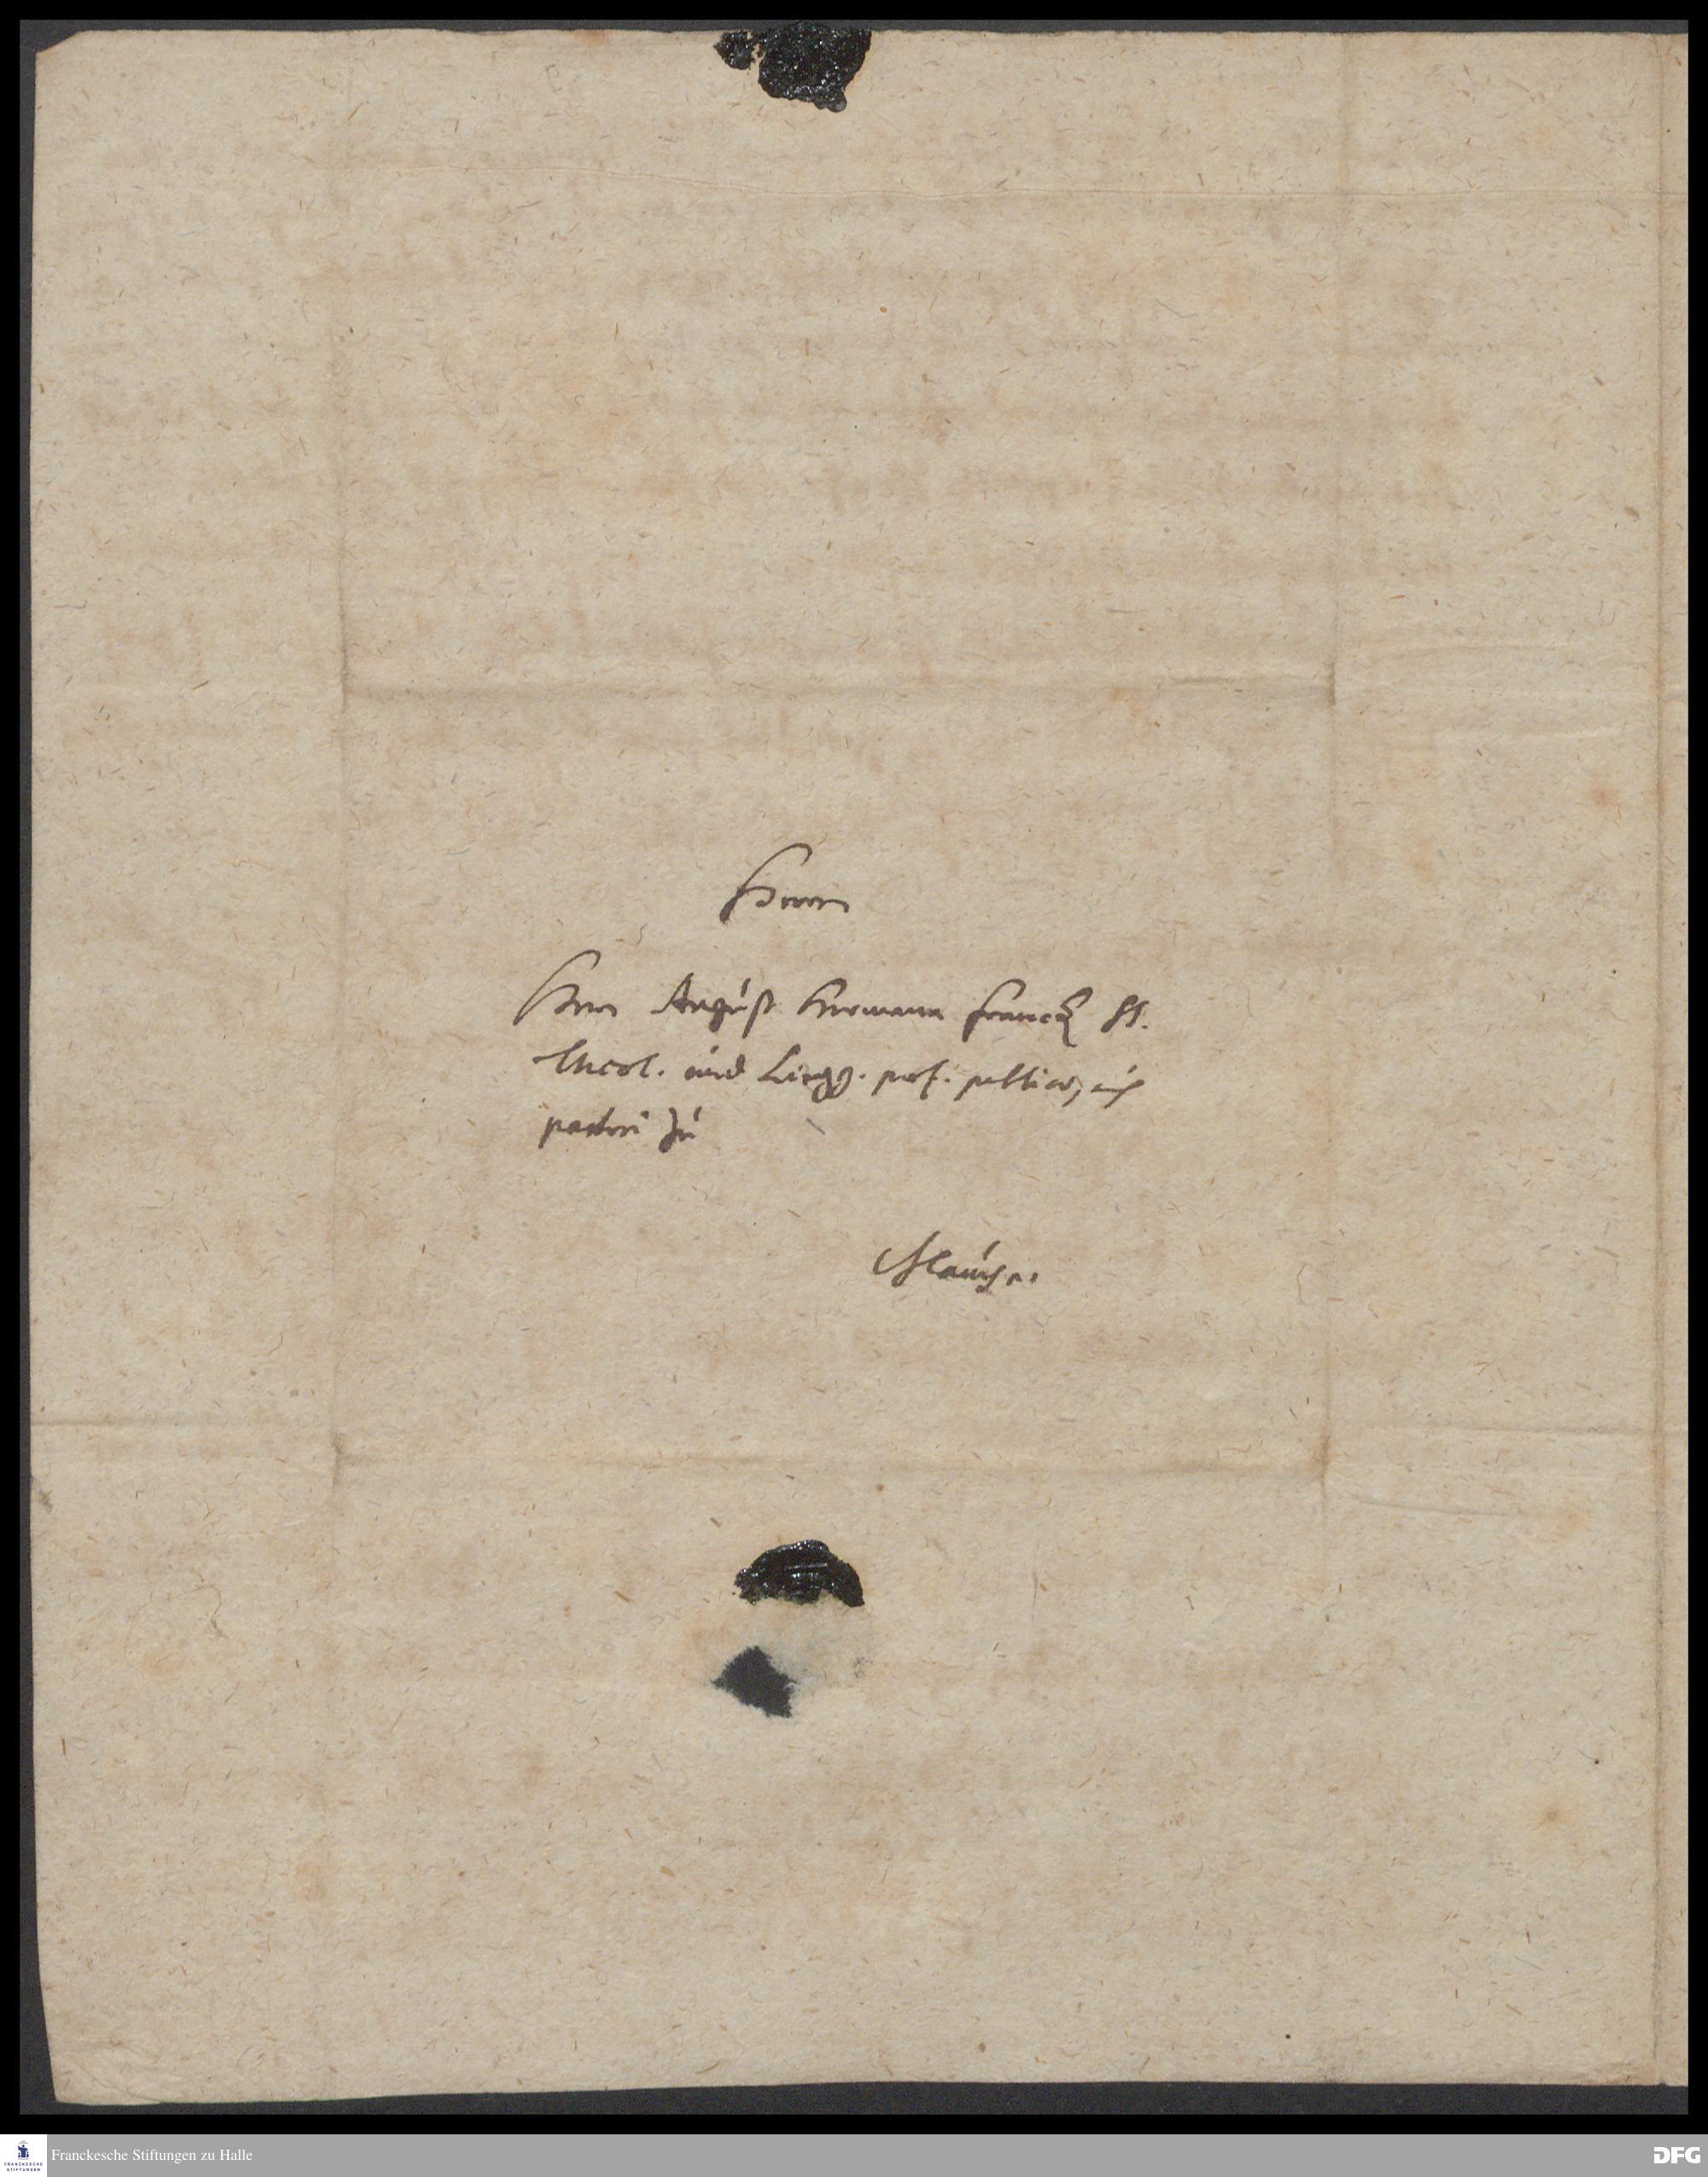 Herrn
Herrn August Hermann Francken SS.
Theol. und Lingg. prof. publico, 
pastori zu
Glaucha.
Franckesche Stiftungen zu Halle
FRANCKESCHE
STIFTUNGEN
DFG